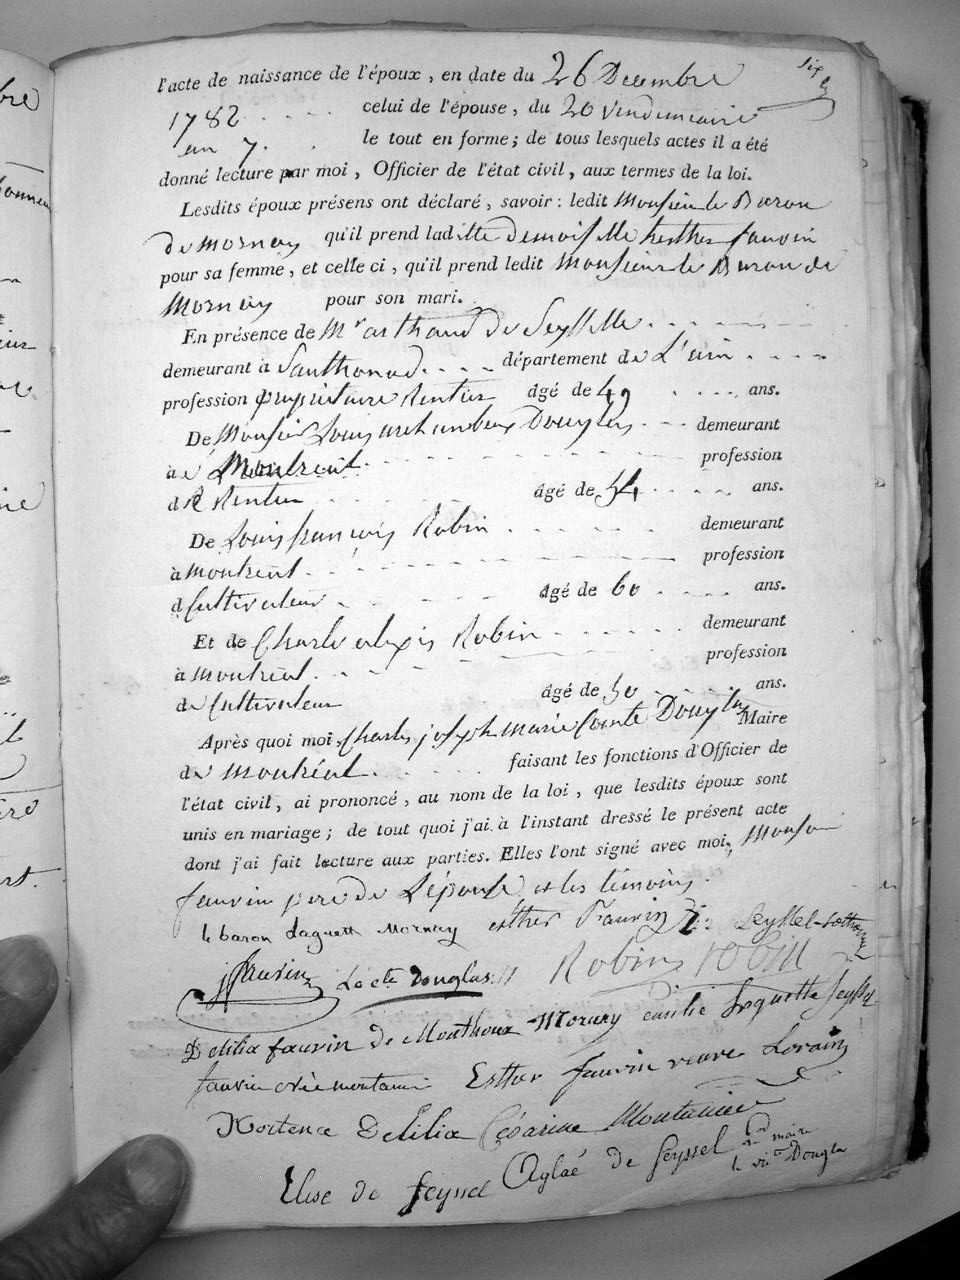 six
l'acte de naissance de l'époux, en date du 26 Decembre
1782 . . . . celui de l'épouse, du 20 vendemiaire
an 7. . le tout en forme; de tous lesquels actes il a été
donné lecture par moi, Officier de l'état civil, aux termes de la loi.
Lesdits époux présens ont déclaré, savoir: ledit Monsieur le Baron
de Mornay qu'il prend ladite demoiselle hesther fauvin
pour sa femme, et celle ci, qu'il prend ledit Monsieur le Baron de
Mornay pour son mari.
En présence de Mr arthaud de Seysselle
demeurant à Santhonad département de L'ain
profession propriétaire Rentier âgé de 49 ans.
De Monsieur Louis archambeux Douglas demeurant
à Montreal profession
de Rentier âgé de 54 ans.
De Louis françois Robin demeurant
à montreal profession
de Cultivateur âgé de 60 ans.
Et de Charle alexis Robin demeurant
à montreal profession
de Cultivateur âgé de 50 ans.
Après quoi moi Charles joseph marie Comte Douglas Maire
de Montréal faisant les fonctions d'Officier de
l'état civil, ai prononcé, au nom de la loi, que lesdits époux sont
unis en mariage; de tout quoi j'ai à l'instant dressé le présent acte
dont j'ai fait lecture aux parties. Elles l'ont signé avec moi,
fauvin pere de L'épouse et les témoins.
le baron daguett Mornay esther Fauvin Seyssel-Sothonod
jfauvin Le cte Douglas Robin robin
Delilia fauvin de Mouthoux Mornay émilie Seyssel
fauvin née montanier Esther fauvin veuve Lorain
Hortence Delilia Césarine Montanier
Elise de Seyssel Aglaé de Seyssel maire
le vte Douglas